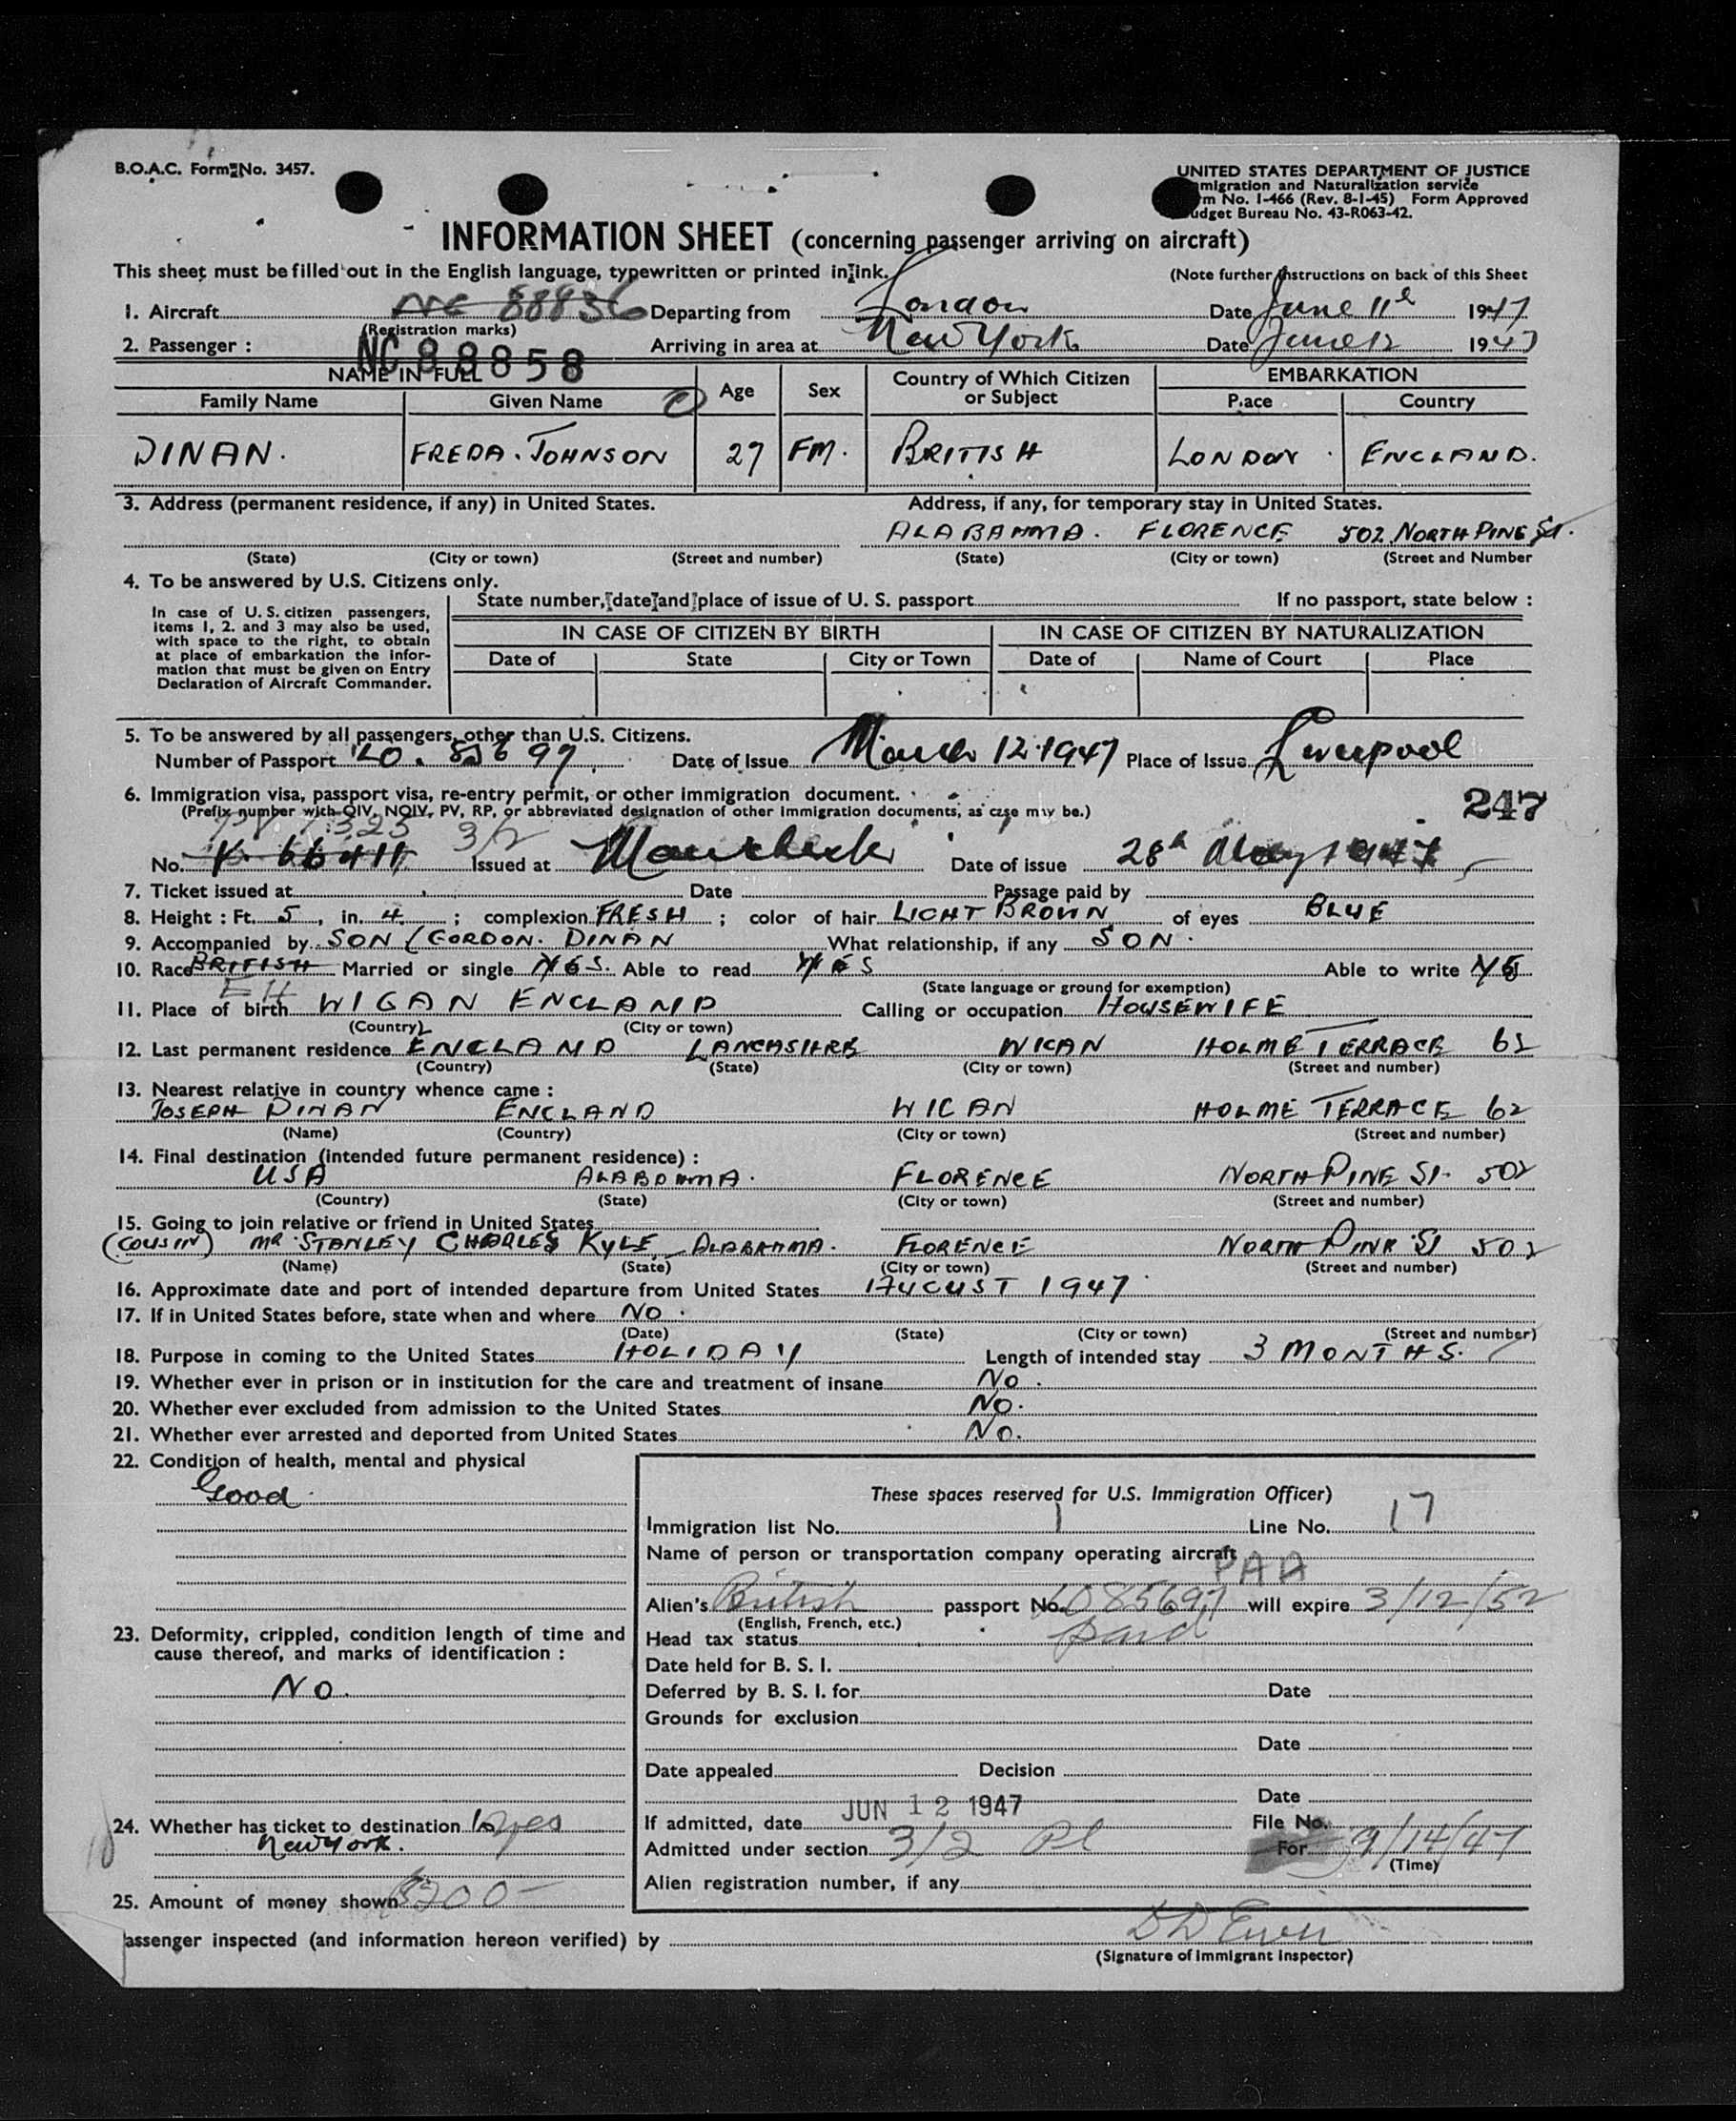 B.O.A.C. Form No. 3457.
UNITED STATES DEPARTMENT OF JUSTICE
migration and Naturalization service
rm No. I-466 (Rev. 8-1-45) Form Approved
udget Bureau No. 43-R063-42.
INFORMATION SHEET (concerning passenger arriving on aircraft)
This sheet must be filled out in the English language, typewritten or printed in ink.
(Note further instructions on back of this Sheet
1. Aircraft NC 88836 Departing from London Date June 11th 1947
(Registration marks)
2. Passenger : NC 88858 Arriving in area at New York Date June 12 1947
NAME IN FULL Age Sex Country of Which Citizen or Subject EMBARKATION
Family Name Given Name Place Country
DINAN. FREDA. JOHNSON 27 FM. BRITISH LONDON ENGLAND.
3. Address (permanent residence, if any) in United States. Address, if any, for temporary stay in United States.
ALABAMMA. FLORENCE 502 NORTH PINE ST.
(State) (City or town) (Street and number) (State) (City or town) (Street and Number
4. To be answered by U.S. Citizens only.
In case of U.S. citizen passengers, items 1, 2. and 3 may also be used, with space to the right, to obtain at place of embarkation the information that must be given on Entry Declaration of Aircraft Commander.
State number, date and place of issue of U. S. passport If no passport, state below :
IN CASE OF CITIZEN BY BIRTH IN CASE OF CITIZEN BY NATURALIZATION
Date of State City or Town Date of Name of Court Place
5. To be answered by all passengers, other than U.S. Citizens.
Number of Passport Date of Issue March 12. 1947 Place of Issue Liverpool
6. Immigration visa, passport visa, re-entry permit, or other immigration document.
247
(Prefix number with QIV, NQIV, PV, RP, or abbreviated designation of other Immigration documents, as case may be.)
3/2
No. V. 66411 Issued at Date of issue 28th May 1947
7. Ticket issued at Date Passage paid by
8. Height : Ft. 5, in. 4 ; complexion FRESH ; color of hair LIGHT BROWN of eyes BLUE
9. Accompanied by SON (GORDON. DINAN What relationship, if any SON.
10. Race BRITISH Married or single YES. Able to read YES Able to write YES
(State language or ground for exemption)
11. Place of birth WIGAN ENGLAND Calling or occupation HOUSEWIFE
(Country) (City or town)
12. Last permanent residence ENGLAND LANCASHIRE WIGAN HOLME TERRACE 62
(Country) (State) (City or town) (Street and number)
13. Nearest relative in country whence came :
JOSEPH DINAN ENGLAND WIGAN HOLME TERRACE 62
(Name) (Country) (City or town) (Street and number)
14. Final destination (intended future permanent residence) :
USA ALABAMMA. FLORENCE NORTH PINE ST. 502
(Country) (State) (City or town) (Street and number)
15. Going to join relative or friend in United States
(COUSIN) MR. STANLEY CHARLES KYLE ALABAMMA. FLORENCE NORTH PINE ST 502
(Name) (State) (City or town) (Street and number)
16. Approximate date and port of intended departure from United States AUGUST 1947
17. If in United States before, state when and where NO.
(Date) (State) (City or town) (Street and number)
18. Purpose in coming to the United States HOLIDAY Length of intended stay 3 MONTHS.
19. Whether ever in prison or in institution for the care and treatment of insane No.
20. Whether ever excluded from admission to the United States No.
21. Whether ever arrested and deported from United States No.
22. Condition of health, mental and physical
Good.
These spaces reserved for U.S. Immigration Officer)
Immigration list No. 1 Line No. 17
Name of person or transportation company operating aircraft
PAA
Alien's British passport No. 085697 will expire 3/12/52
(English, French, etc.)
Head tax status paid
23. Deformity, crippled, condition length of time and cause thereof, and marks of identification :
No.
Date held for B. S. I.
Deferred by B. S. I. for Date
Grounds for exclusion
Date
Date appealed Decision
Date
24. Whether has ticket to destination yes
New York.
If admitted, date JUN 12 1947 File No.
Admitted under section 3/2 For 9/14/47
(Time)
Alien registration number, if any
25. Amount of money shown $200-
assenger inspected (and information hereon verified) by
(Signature of Immigrant Inspector)